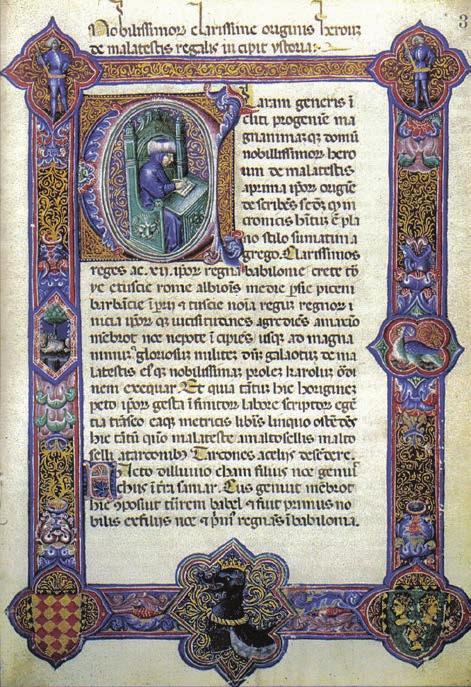 3
Nobilissimorum clarissime originis heroum
de malatestis regalis incipit ystoria:-
Claram generis i
cliti progenie ma
gnanimaqz domū
nobilissimor hero
um de malatestis
a prima ipor origie
describēs secūt qz in
cronicis hitur ī pla
no stilo sumatim a
grego. Clarissimos
reges ac. xii. ipor regna babilonie crete tb
ye etuscie rome albiois medie psie piceni
barbācie ī tuscie noia reguz regnor ī
nicia ipor qz vicissitudines agrediēs amaxio
mēbrot noe nepote īcipiēs usqz ad magna
nimuz gloriosuz militez dnz galaotuz de ma
latestis eiqz nobilissimaz prolez karoluz ordi
nem exequar. Et quia tātuz hic horiginez
peto ipor gesta īfinitor labore scriptor egē
tia trāseo eaqz metricis libris linquo ostēdēs
hic tātū quō malateste a maltosellis malto
selli a tarconib Tarcones acelijs descēdere.
Facto dilluvio cham filius noe genuit
chus ītra samar. Cus genuit mēbrot
hic cōposuit turrem babel et fuit primus no
bilis ex filijs noe et pmus regnās ī babilonia.